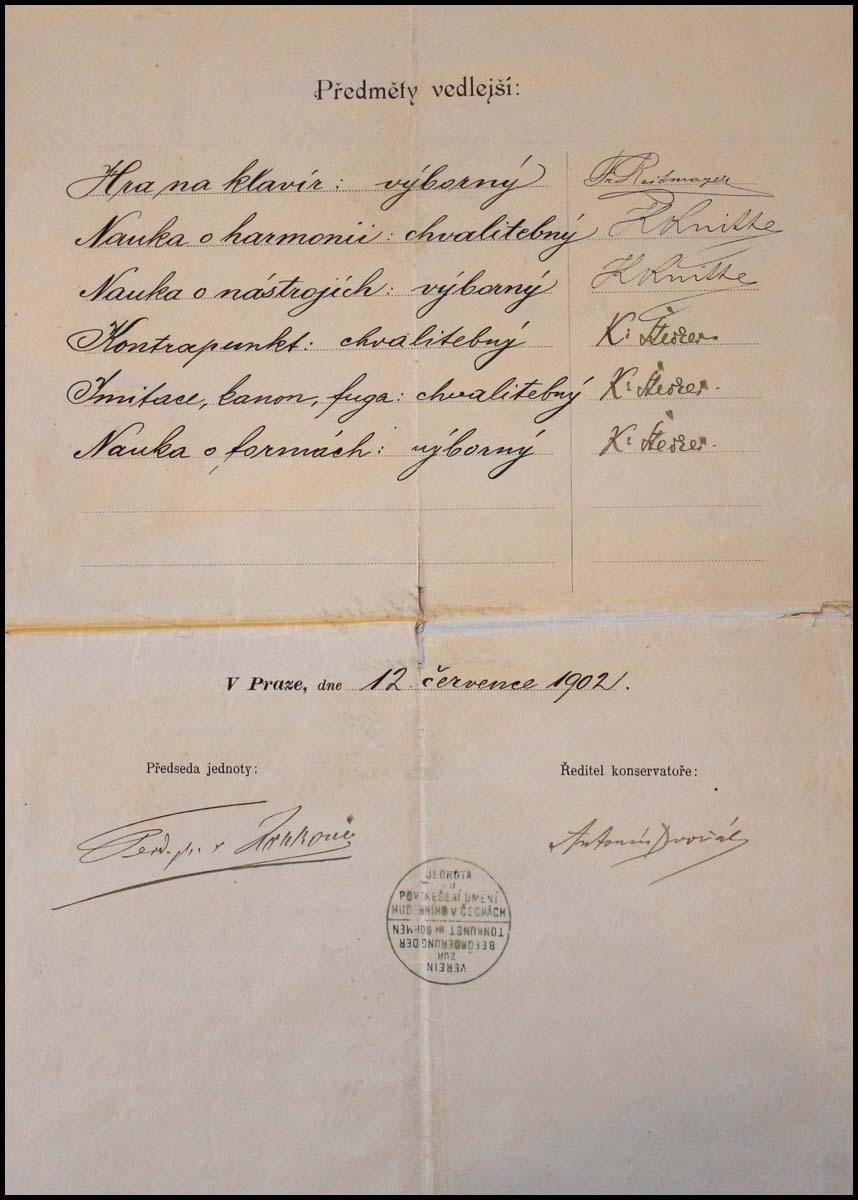 Předměty vedlejší:
Hra na klavír: výborný
Nauka o harmonii: chvalitebný
Nauka o nástrojích: výborný
Kontrapunkt: chvalitebný K. Stecker.
Imitace, kanon, fuga: chvalitebný K. Stecker.
Nauka o formách: výborný K. Stecker.
V Praze, dne 12. července 1902.
Předseda jednoty: Ředitel konservatoře:
Antonín Dvořák
JEDNOTA
KU
POVZNEŠENÍ UMĚNÍ
HUDEBNÍHO V ČECHÁCH
VEREIN
ZUR
BEFÖRDERUNG DER
TONKUNST IN BÖHMEN